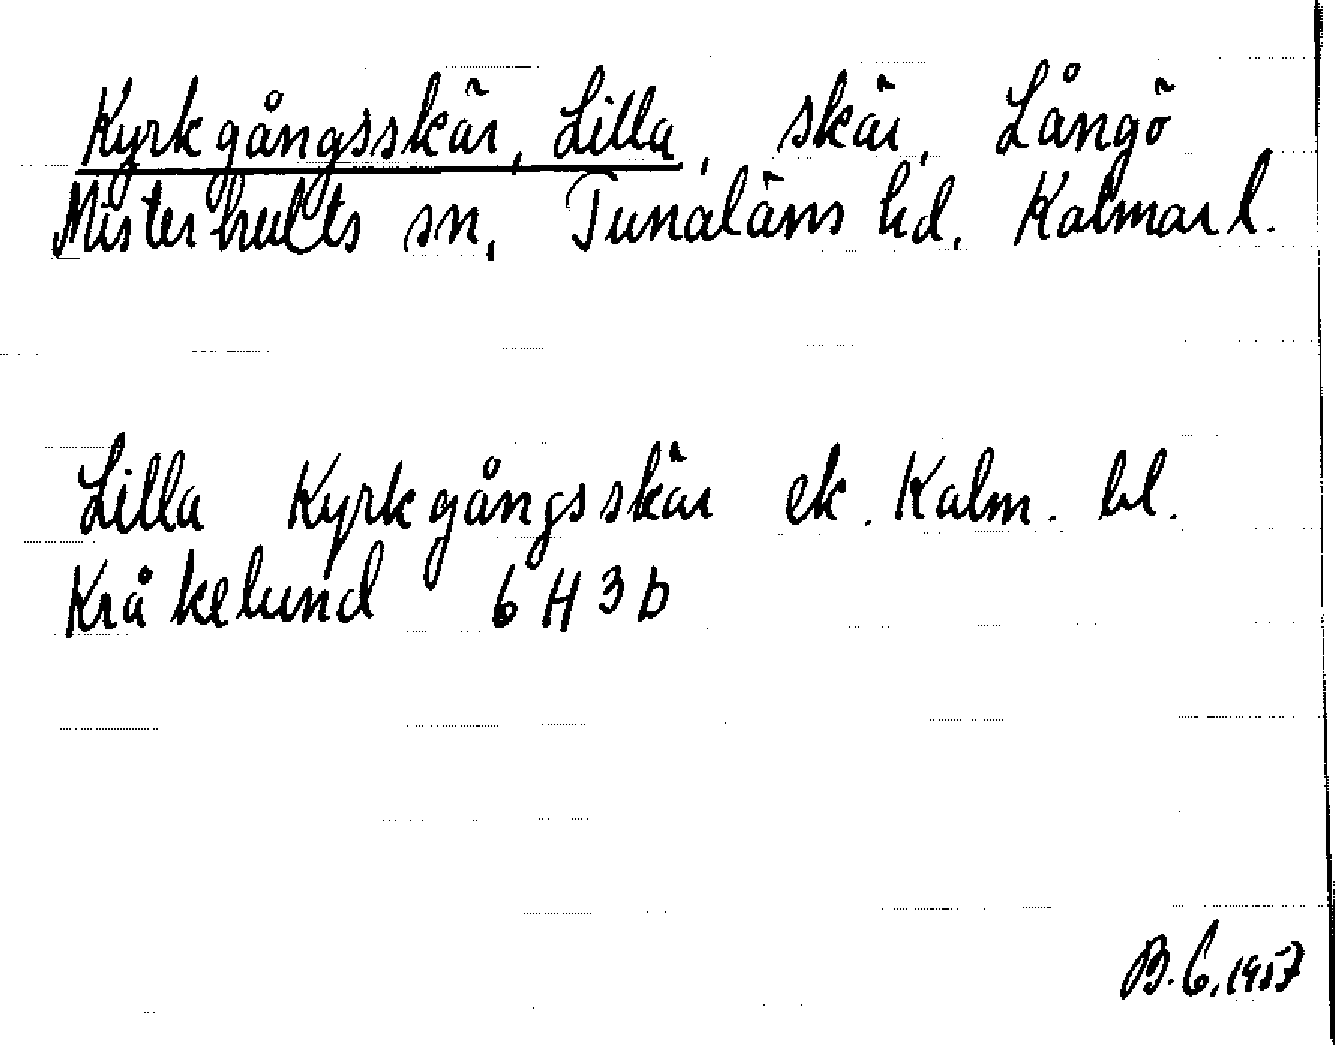 Kyrkgångsskär, Lilla, skär, Långö
Misterhults sn, Tunaläns hd, Kalmar l.
Lilla Kyrkgångsskär ek. Kalm. bl.
Kråkelund 6 H 3 b
B.C. 1957